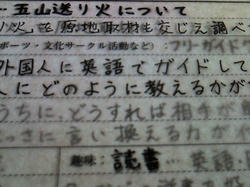 五山送り火について
火」を現地取材も交じえ調べ
ポーツ・文化サークル活動など) フリーガイド
外国人に英語でガイドして
人にどのように教えるかがで
うちに、どうすれば相手が
さに言い換える力が
趣味: 読書… 英語